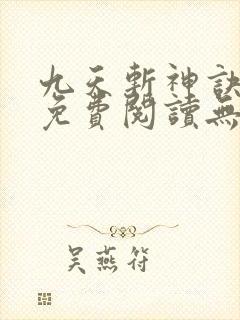 九天斬神訣
免費閱讀無
吳燕符